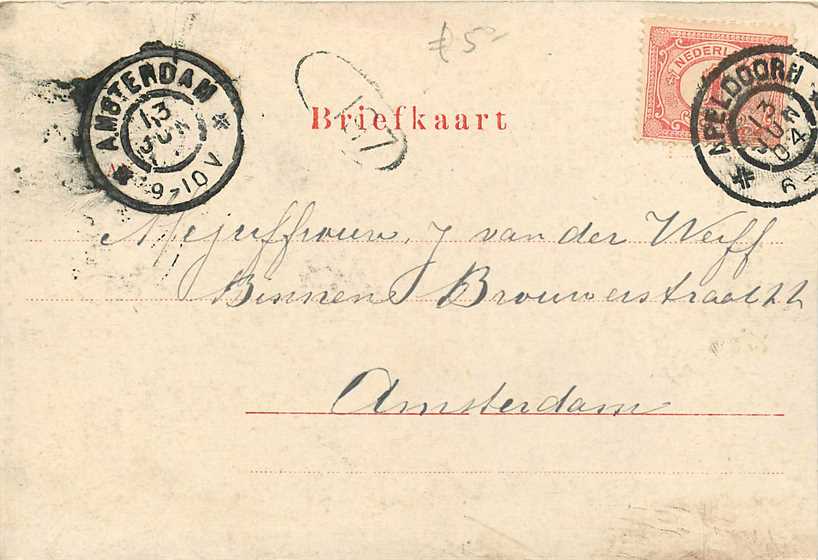 £5-
NEDERL
AMSTERDAM
13
JUN
9-10 V
APELDOORN
13
JUN
04
6-
Briefkaart
Mejuffrouw, J van der Werff
Binnen Brouwerstraat 22
Amsterdam